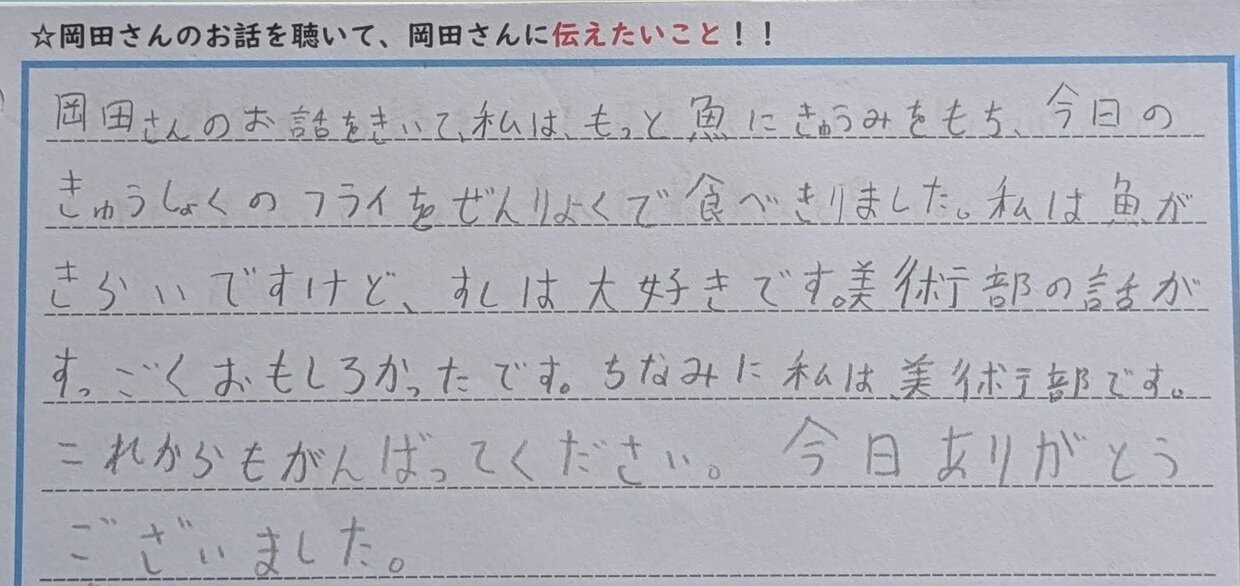 ☆岡田さんのお話を聴いて、岡田さんに伝えたいこと！！
岡田さんのお話をきいて、私は、もっと魚にきゅうみをもち、今日の
きゅうしょくのフライをぜんりょくで食べきりました。私は魚が
きらいですけど、すしは大好きです。美術部の話が
すっごくおもしろかったです。ちなみに私は、美術部です。
これからもがんばってください。今日ありがとう
ございました。